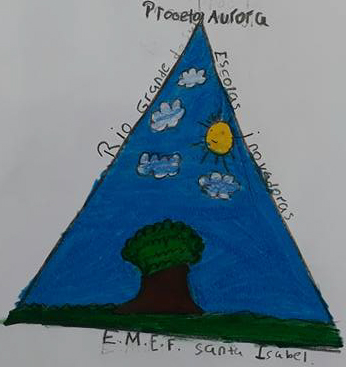 Projeto Aurora
Rio Grande do
Escolas inovadoras
E.M.E.F. Santa Isabel.